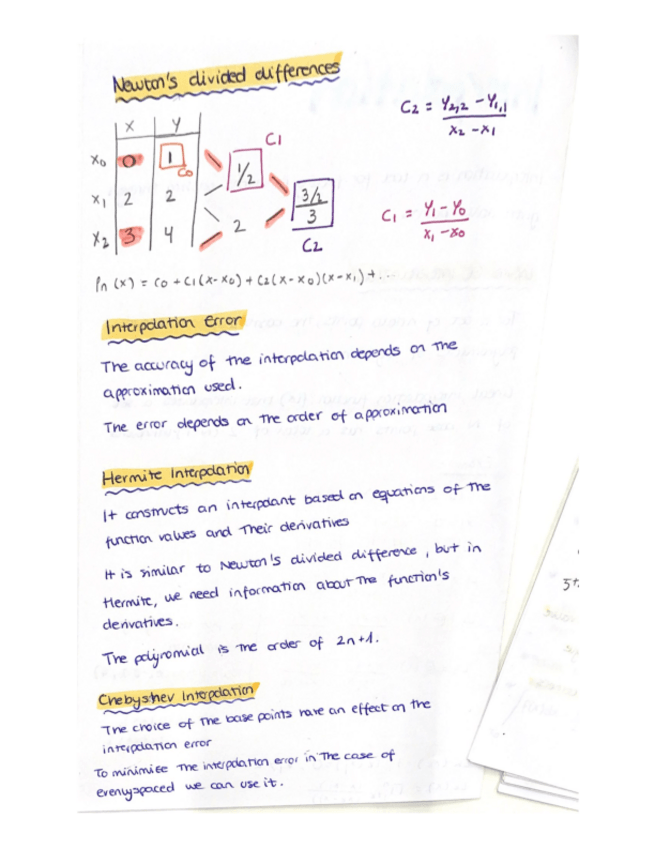 Newton's divided differences
C2 = Y2,2 - Y1,1 / x2 - x1
x y
C1
x0 0 1 C0
1/2
x1 2 2
3/2 / 3
x2 3 4
2
C2
C1 = Y1 - Y0 / x1 - x0
Pn (x) = C0 + C1(x-x0) + C2(x-x0)(x-x1) + ...
Interpolation Error
The accuracy of the interpolation depends on the
approximation used.
The error depends on the order of approximation
Hermite Interpolation
It constructs an interpolant based on equations of the
function values and their derivatives
It is similar to Newton's divided difference, but in
Hermite, we need information about the function's
derivatives.
The polynomial is the order of 2n+1.
Chebyshev Interpolation
The choice of the base points have an effect on the
interpolation error
To minimise the interpolation error in the case of
evenlyspaced we can use it.